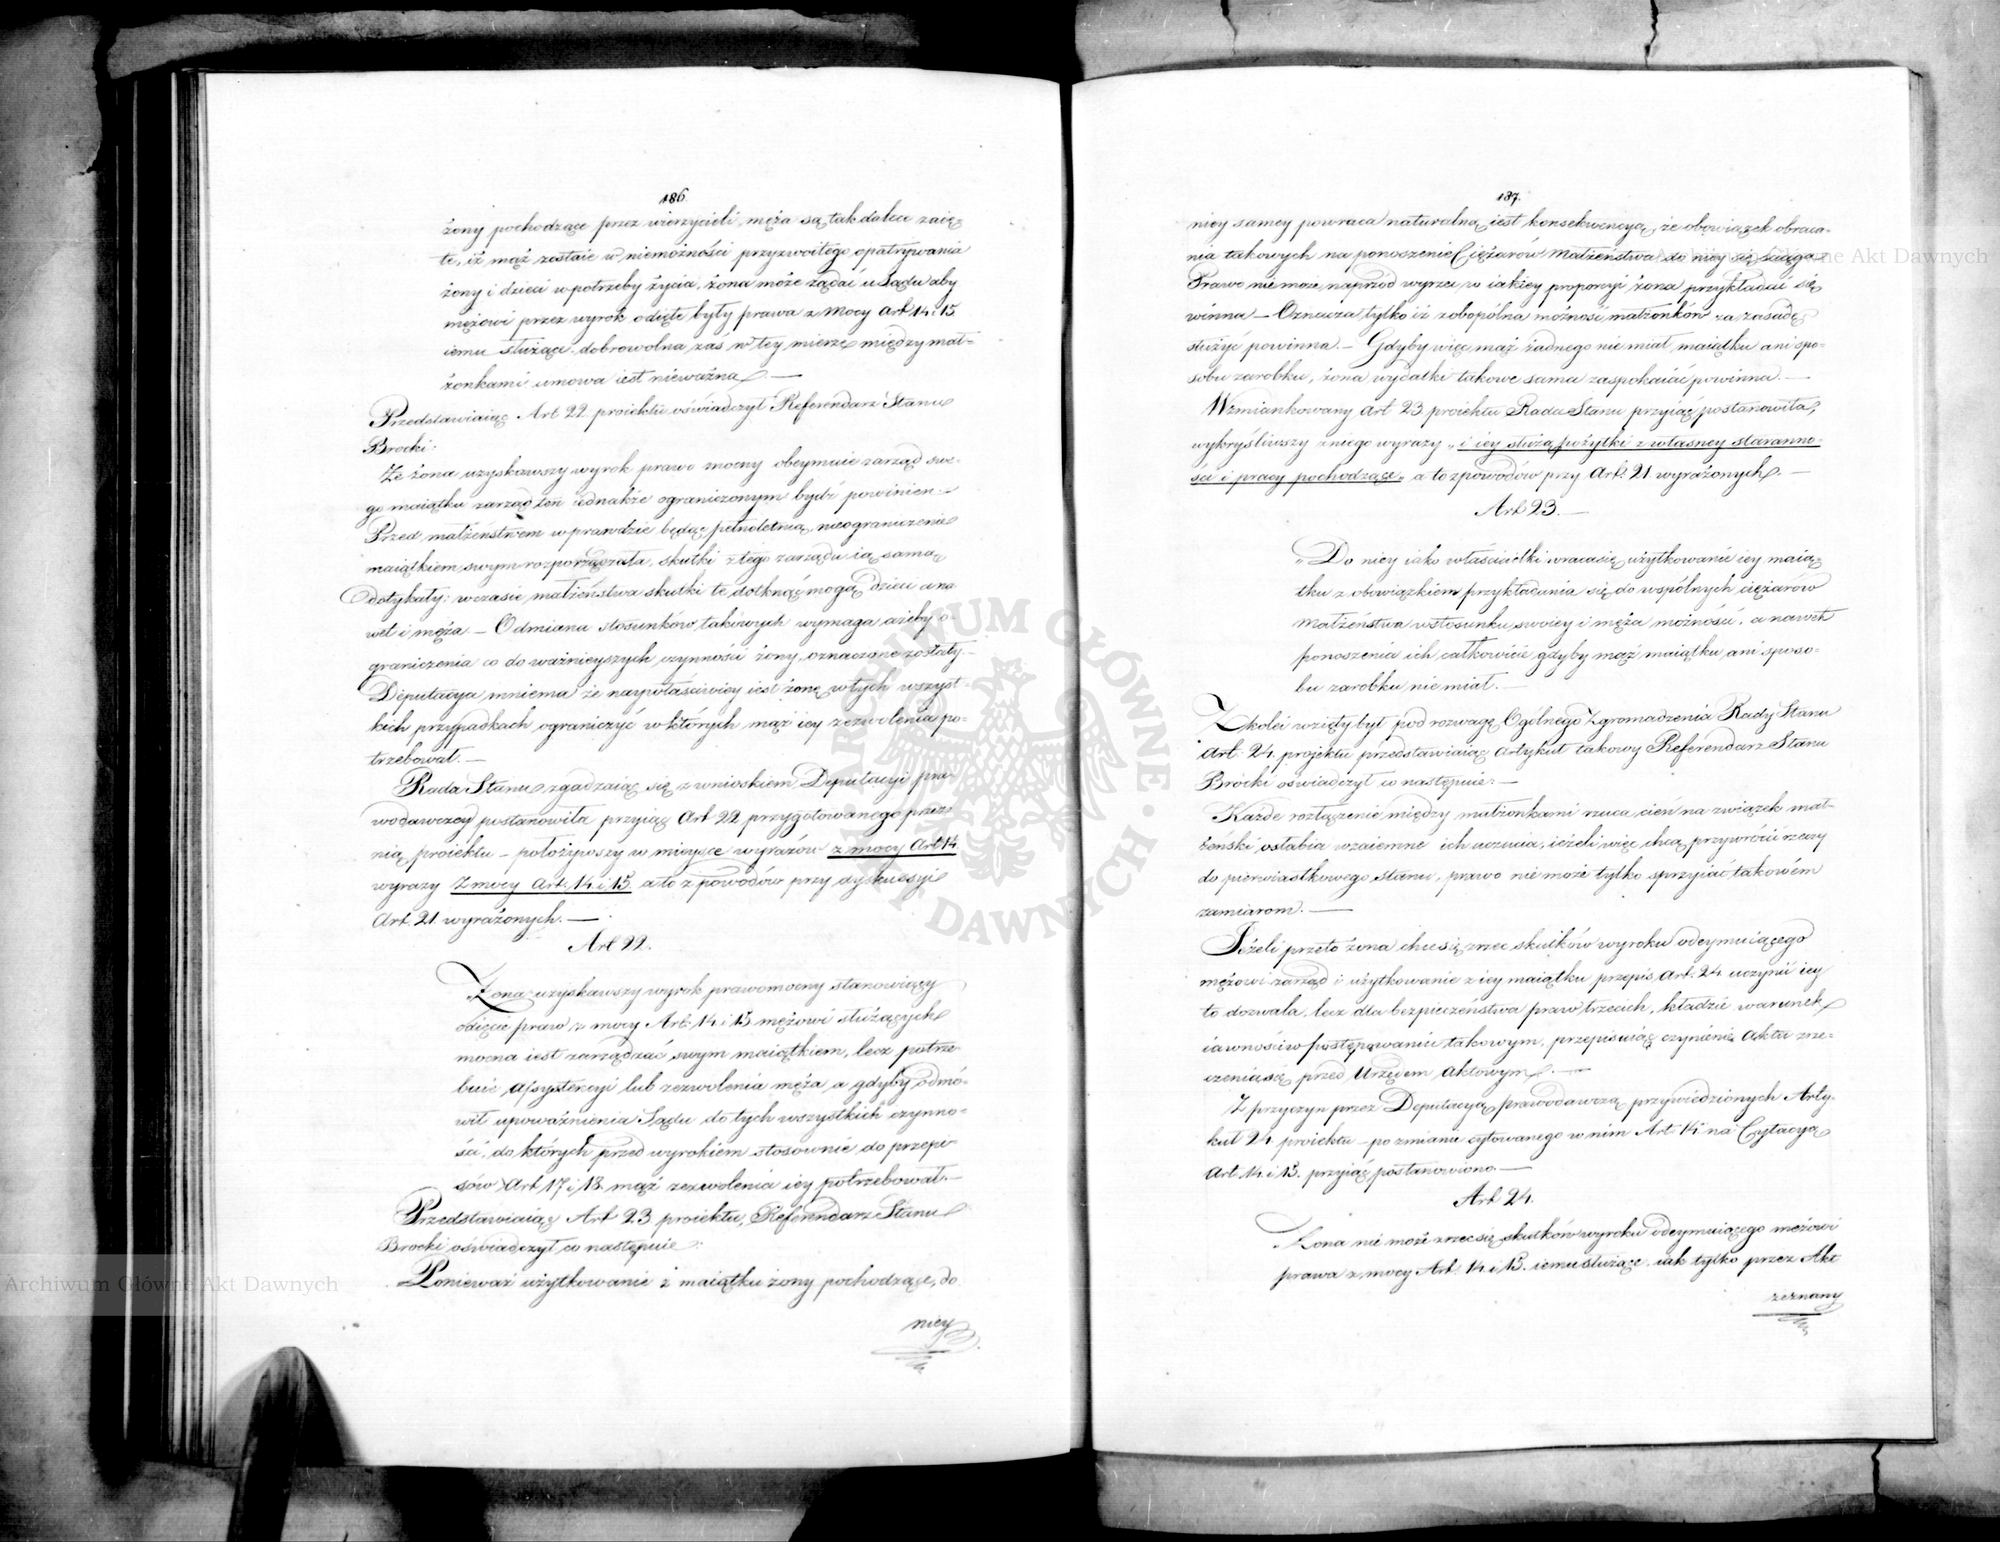 186.
żony pochodzące przez wierzycieli męża są tak dalece zaię-
te, iż mąż zostaie w niemożności przyzwoitego opatrywania
żony i dzieci w potrzeby życia, żona może żądać u Sądu aby
mężowi przez wyrok odięte były prawa z Mocy Art 14 i 15
iemu służące. dobrowolna zaś w tey mierze między mał-
żonkami umowa iest nieważna. —
Przedstawiaiąc Art 22 proiektu oświadczył Referendarz Stanu
Brocki:
Że żona uzyskawszy wyrok prawo mocny obeymuie zarząd swe-
go maiątku zarząd ten iednakże ograniczonym bydź powinien. —
Przed małżeństwem wprawdzie będąc pełnoletnią, nieograniczenie
maiątkiem swym rozporządzała, skutki z tego zarządu ią samą
dotykały; wczasie małżeństwa skutki te dotknąć mogą dzieci a na
wet i męża. — Odmiana stosunków takowych wymaga ażeby o-
graniczenia co do ważnieyszych czynności żony, oznaczone zostały. —
Deputacya mniema że naywłaściwiey iest żonę w tych wszyst-
kich przypadkach ograniczyć w których mąż iey zezwolenia po-
trzebował. —
Rada Stanu zgadzaiąc się z wnioskiem Deputacyi pra-
wodawczey postanowiła przyiąć Art 22 przygotowanego przez
nią proiektu — położywszy w mieysce wyrazów z mocy Art 14
wyrazy z mocy Art. 14 i 15. a to z powodów przy dyskussyi
Art. 21. wyrażonych. —
Art 22.
„Żona uzyskawszy wyrok prawomocny stanowiący
odięcie praw z mocy Art. 14 i 15 mężowi służących
mocna iest zarządzać swym maiątkiem, lecz potrze-
buie assystencyi lub zezwolenia męża a gdyby odmó-
wił upoważnienia Sądu do tych wszystkich czynno-
ści, do których przed wyrokiem stosownie do przepi-
sów Art 17 i 18. mąż zezwolenia iey potrzebował. —
Przedstawiaiąc Art 23 proiektu, Referendarz Stanu
Brocki oświadczył co następuie:
Ponieważ użytkowanie z maiątku żony pochodzące, do
niey
187.
niey samey powraca naturalną iest konsekwencyą, że obowiązek obraca-
nia takowych na ponoszenie Ciężarów Małżeństwa do niey się ściąga
Prawo nie może naprzód wyrzec w iakiey proporcyi żona przykładać się
winna — Oznacza tylko iż zobopólna możność małżonków za zasadę
służyć powinna. — Gdyby więc mąż żadnego nie miał maiątku ani spo-
sobu zarobku, żona wydatki takowe sama zaspokaiać powinna. —
Wzmiankowany Art 23 proiektu Rada Stanu przyiąć postanowiła,
wykryśliwszy z niego wyrazy „i iey służą pożytki z własney staranno-
ści i pracy pochodzące„ a to z powodów przy Art. 21 wyrażonych. —
Art 23. —
„Do niey iako właścicielki wraca się użytkowanie iey maią-
tku z obowiązkiem przykładania się do wspólnych ciężarów
Małżeństwa w stosunku swoiey i męża możności, a nawet
ponoszenia ich całkowicie gdyby mąż maiątku ani sposo-
bu zarobku nie miał. —
Z kolei wzięty był pod rozwagę Ogólnego Zgromadzenia Rady Stanu
Art. 24 projektu przedstawiaiąc artykuł takowy Referendarz Stanu
Brocki oświadczył co następuie: —
Każde rozłączenie między małżonkami rzuca cień na związek mał-
żeński osłabia wzaiemne ich uczucia, ieżeli więc chcą przywrócić rzeczy
do pierwiastkowego stanu, prawo nie może tylko sprzyiać takowym
zamiarom. —
Jeżeli przeto żona chce się zrzec skutków wyroku odeymuiącego
mężowi zarząd i użytkowanie z iey maiątku przepis Art. 24 uczynić iey
to dozwala, lecz dla bezpieczeństwa praw trzecich, kładzie warunek
iawności w postępowaniu takowym, przepisuiąc czynienie aktu zrze-
czenia się przed Urzędem Aktowym. —
Z przyczyn przez Deputacyą prawodawczą przywiedzionych Arty-
kuł 24 proiektu — po zmianie cytowanego w nim Art. 14 na Cytacyą
Art. 14 i 15. przyiąć postanowiono. —
Art 24.
Żona nie może zrzec się skutków wyroku odeymuiącego mężowi
prawa z mocy Art. 14 i 15. iemu służące. iak tylko przez Akt
zeznany
ARCHIWUM GŁÓWNE AKT DAWNYCH
Archiwum Główne Akt Dawnych
Archiwum Główne Akt Dawnych